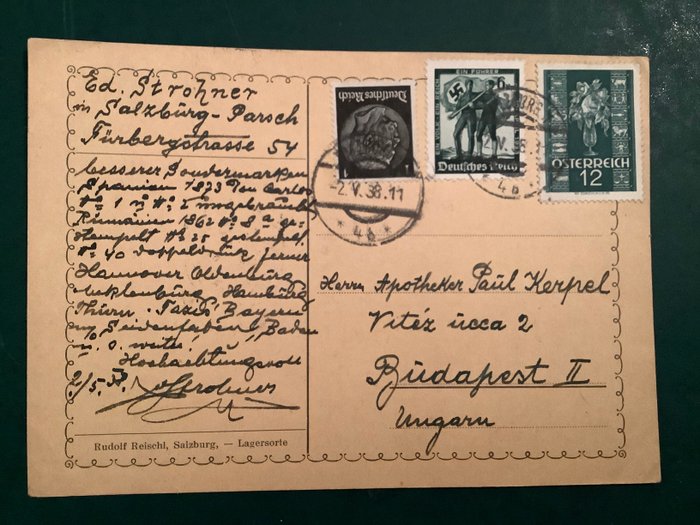 Ed. Strohner
in Salzburg-Parsch
Fürbergstrasse 54
besserer Sondermarken
Spanien 1873 Don Carlos
No 1 u No 5 ungebraucht
Rumänien 1862 No 8a ge-
stempelt No 25 gestempelt,
No 40 Doppeldruck ferner
Hannover Oldenburg
Mecklenburg Hamburg
Thurn. Taxis, Bayern
m Seidenfaden, Baden
u. s. weiter
Hochachtungsvoll
2/5.38. Strohner
Rudolf Reischl, Salzburg, — Lagersorte
Deutsches Reich
EIN FÜHRER
6
Deutsches Reich
ÖSTERREICH
12
-2.V.38.11
* 4b *
2.V.38.1
4b
Herrn Apotheker Paul Kerpel
Vitéz ucca 2
Budapest II
Ungarn